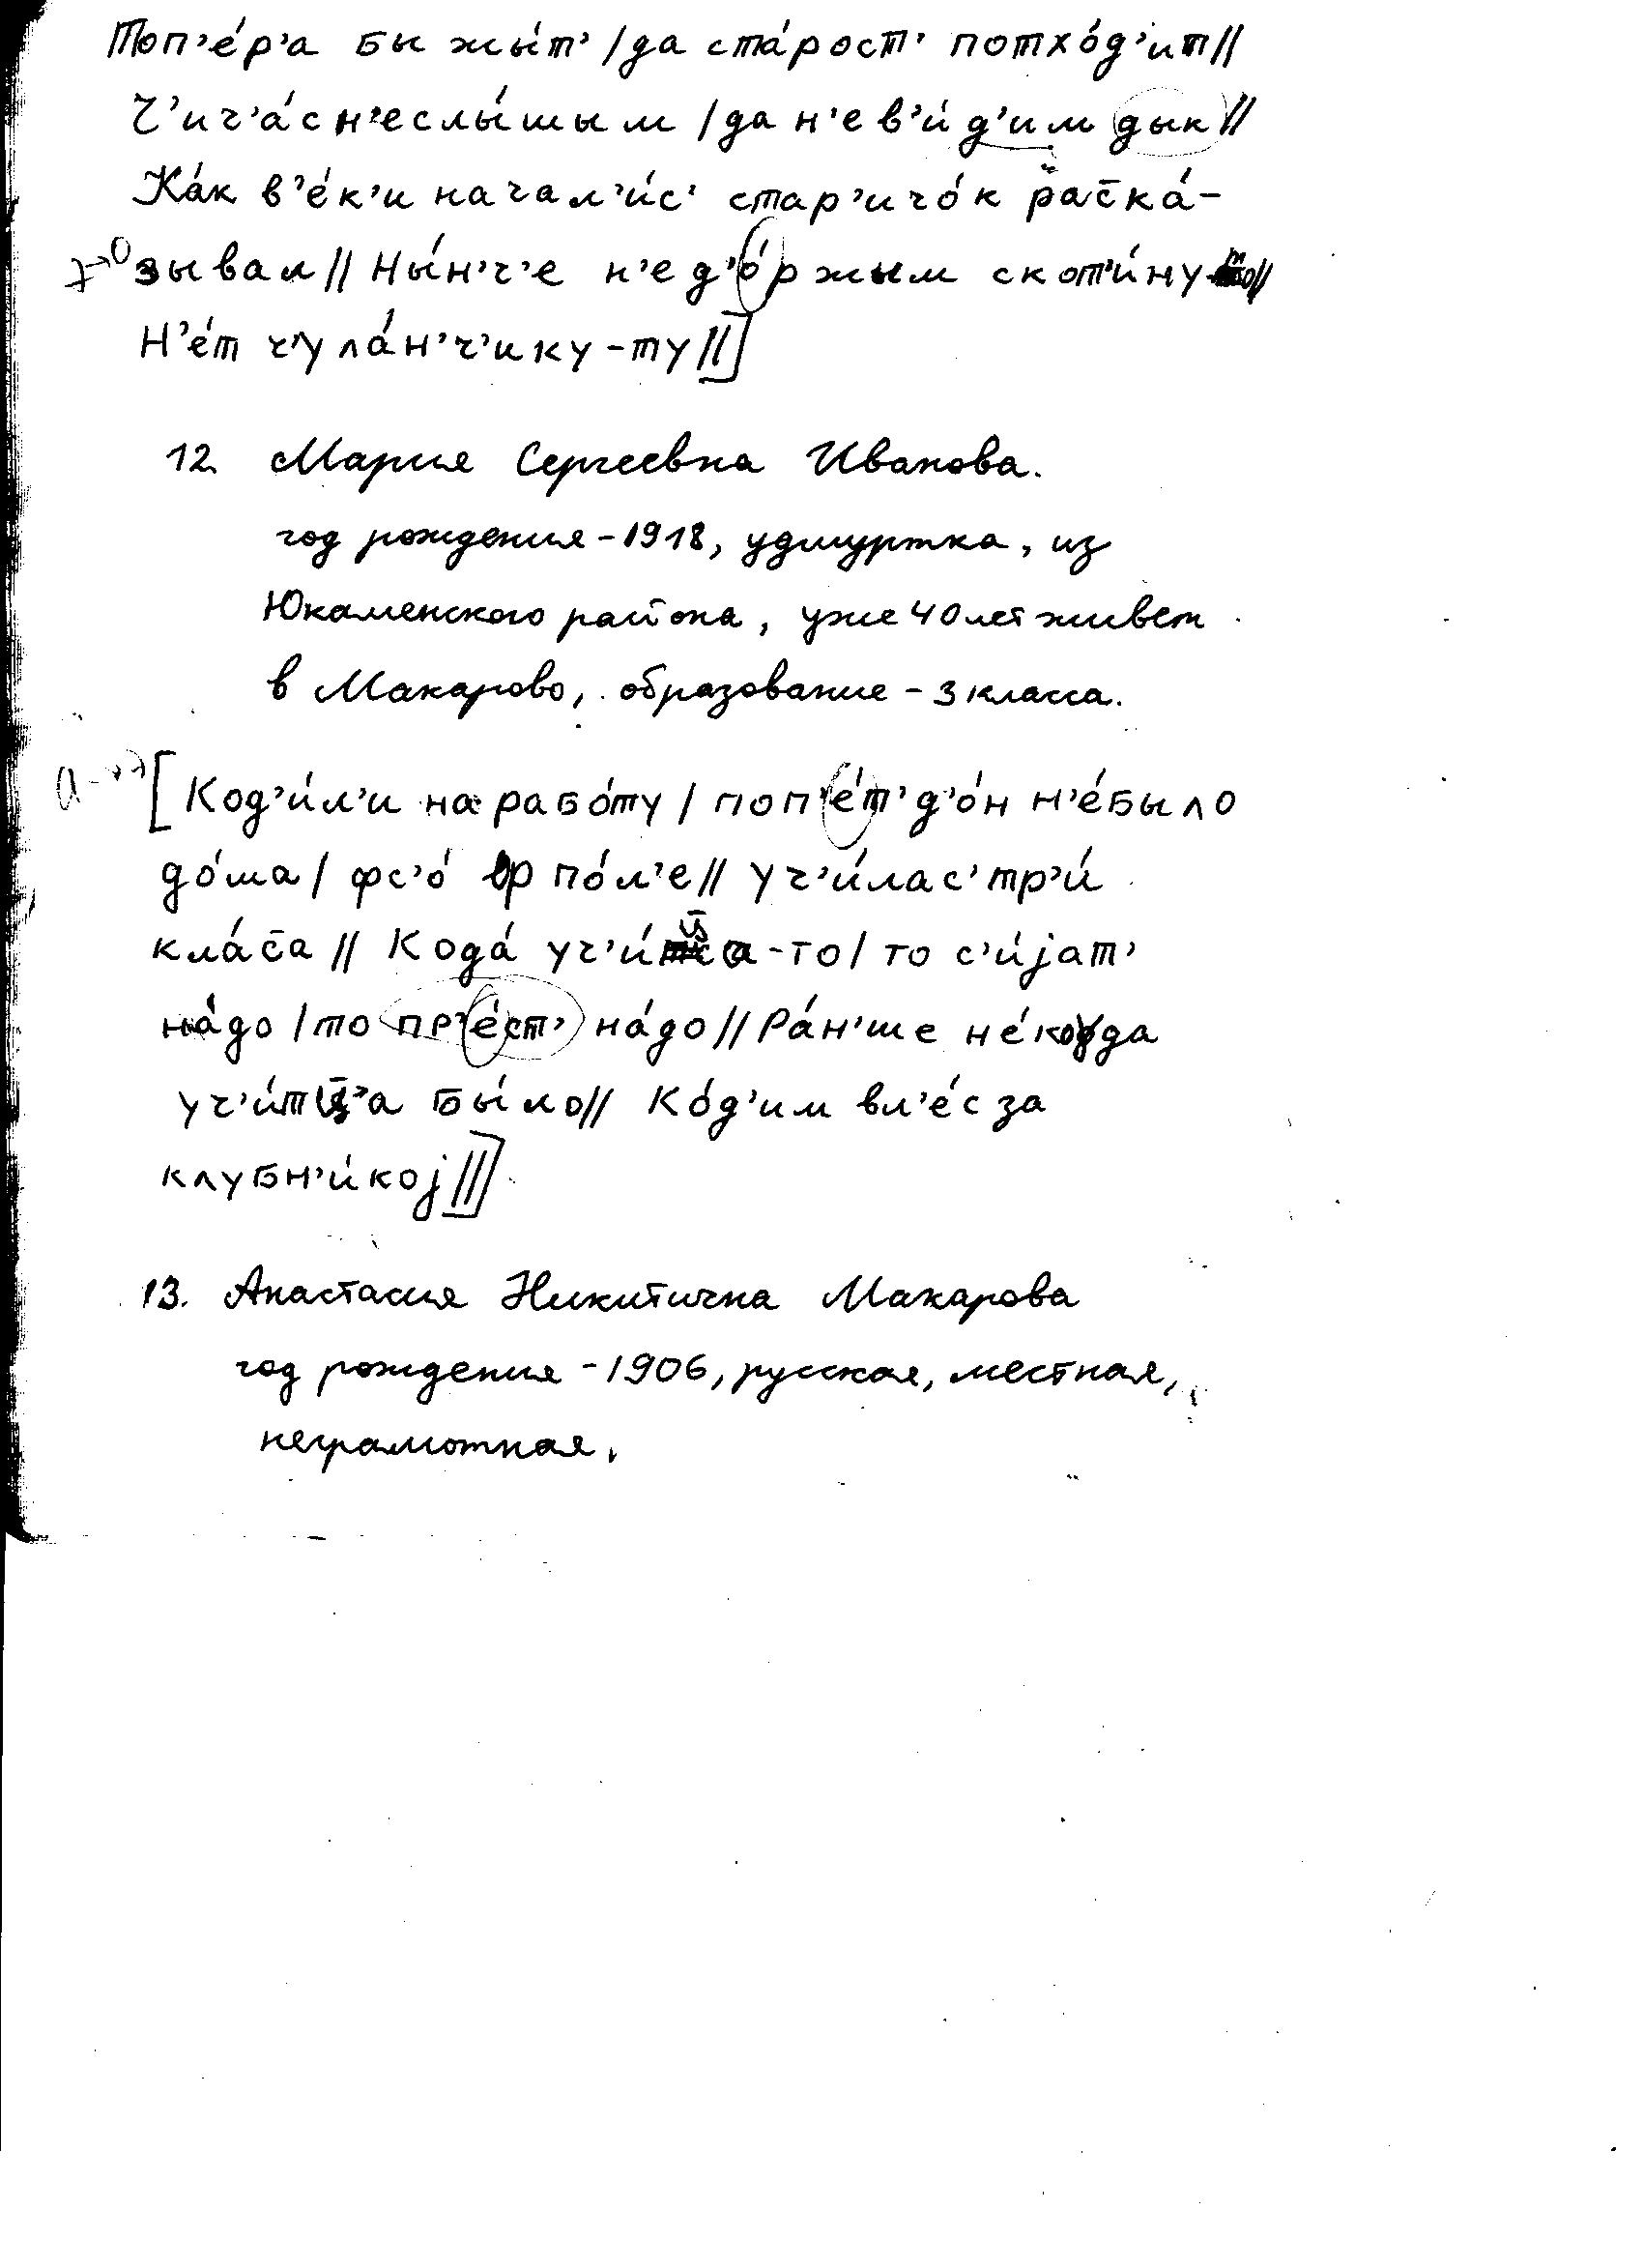 Топ'е́р'а бы жы́т' / да ста́рост' потхо́д'ит //
Ч'ич'а́с н'еслы́шым / да н'е в'и́д'им дык //
Ка́к в'е́к'и начал'и́с' стар'ичо́к рас̄ка́-
зывал // Ны́н'ч'е н'е д'о́ржым скот'и́ну //
Н'е́т ч'ула́н'ч'ику-ту // ]
12. Мария Сергеевна Иванова.
год рождения - 1918, удмуртка, из
Юкаменского района, уже 40 лет живет
в Макарово, образование - 3 класса.
[ Код'и́л'и на рабо́ту / поп'е́т' д'о́н н'е́было
до́ма / фс'о́ в по́л'е // уч'и́лас' тр'и́
кла́с̄а // Кода́ уч'и́ц̄а-то / то с'и́jат'
на́до / то пр'е́ст' на́до // Ра́н'ше не́когда
уч'и́тц̄'а бы́ло // Ко́д'им вл'е́с за
клубн'и́коj // ]
13. Анастасия Никитична Макарова
год рождения - 1906, русская, местная,
неграмотная.